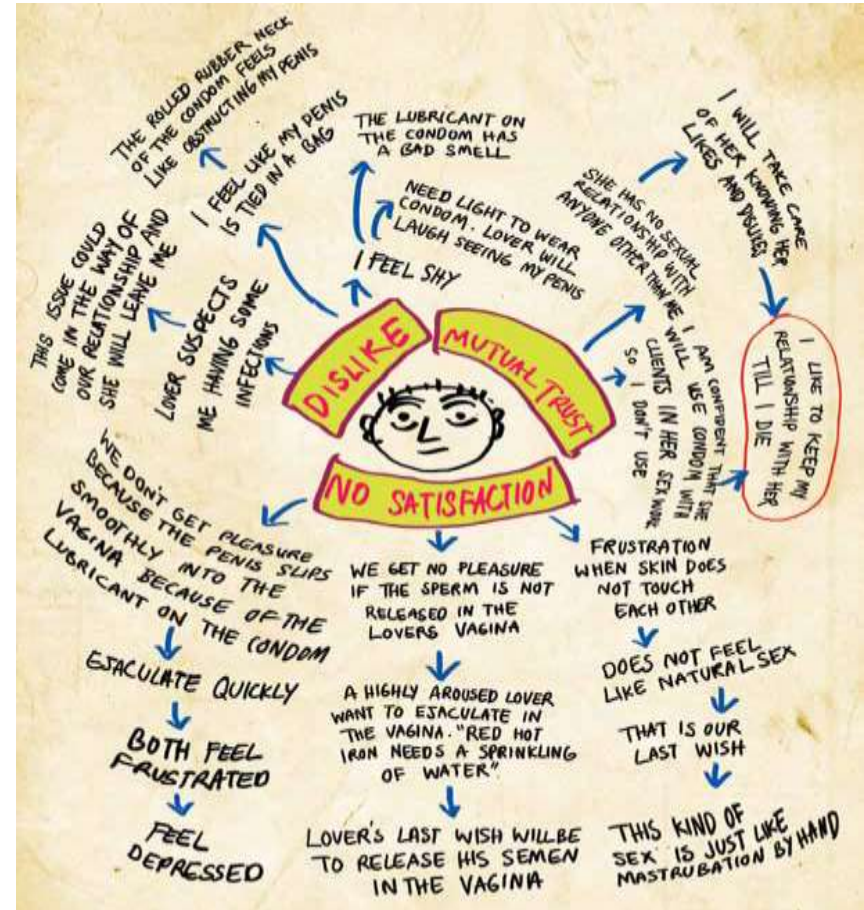 THE ROLLED RUBBER NECK
OF THE CONDOM FEELS
LIKE OBSTRUCTING MY PENIS
I FEEL LIKE MY PENIS
IS TIED IN A BAG
THE LUBRICANT ON
THE CONDOM HAS
A BAD SMELL
NEED LIGHT TO WEAR
CONDOM. LOVER WILL
LAUGH SEEING MY PENIS
I FEEL SHY
THIS ISSUE COULD
COME IN THE WAY OF
OUR RELATIONSHIP AND
SHE WILL LEAVE ME
LOVER SUSPECTS
ME HAVING SOME
INFECTIONS
DISLIKE
MUTUAL TRUST
NO SATISFACTION
SHE HAS NO SEXUAL
RELATIONSHIP WITH
ANYONE OTHER THAN ME
I WILL TAKE CARE
OF HER KNOWING HER
LIKES AND DISLIKES
I AM CONFIDENT THAT SHE
WILL USE CONDOM WITH
CLIENTS IN HER SEX WORK
SO I DON'T USE
I LIKE TO KEEP MY
RELATIONSHIP WITH HER
TILL I DIE
WE DON'T GET PLEASURE
BECAUSE THE PENIS SLIPS
SMOOTHLY INTO THE
VAGINA BECAUSE OF THE
LUBRICANT ON THE CONDOM
EJACULATE QUICKLY
BOTH FEEL
FRUSTRATED
FEEL
DEPRESSED
WE GET NO PLEASURE
IF THE SPERM IS NOT
RELEASED IN THE
LOVERS VAGINA
A HIGHLY AROUSED LOVER
WANT TO EJACULATE IN
THE VAGINA. "RED HOT
IRON NEEDS A SPRINKLING
OF WATER".
LOVER'S LAST WISH WILL BE
TO RELEASE HIS SEMEN
IN THE VAGINA
FRUSTRATION
WHEN SKIN DOES
NOT TOUCH
EACH OTHER
DOES NOT FEEL
LIKE NATURAL SEX
THAT IS OUR
LAST WISH
THIS KIND OF
SEX IS JUST LIKE
MASTRUBATION BY HAND